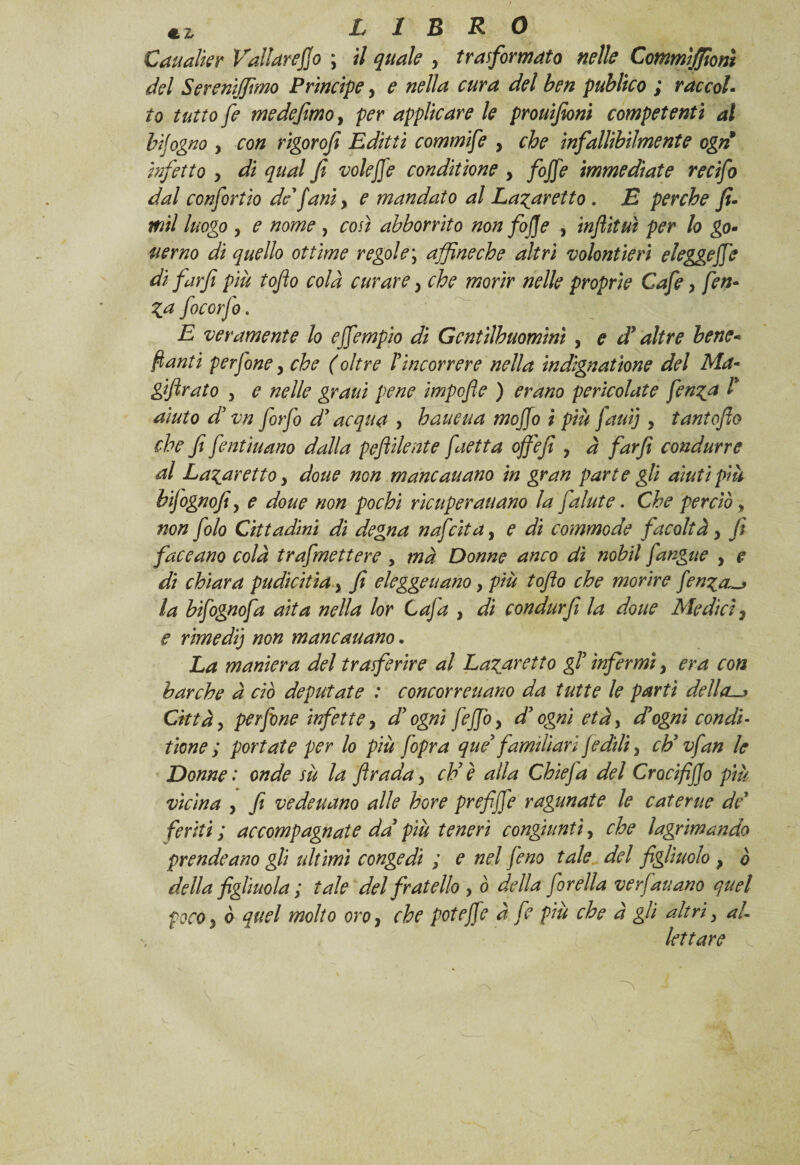 42 LIBRO
Caualier Vallareſſo ; il quale , trasformato nelle Commiſſioni
del Sereniſſimo Principe , e nella cura del ben publico ; raccol-
to tutto ſe medeſimo, per applicare le prouiſioni competenti al
biſogno , con rigoroſi Editti commiſe , che infallibilmente ogn'
infetto , di qual ſi voleſſe conditione , foſſe immediate reciſo
dal conſortio de' ſani, e mandato al Lazaretto . E perche ſi-
mil luogo , e nome , così abborrito non foſſe , inſtituì per lo go-
uerno di quello ottime regole; affineche altri volontieri eleggeſſe
di farſi più toſto colà curare, che morir nelle proprie Caſe, ſen-
za ſocorſo.
E veramente lo eſſempio di Gentilhuomini , e d' altre bene-
ſtanti perſone, che (oltre l'incorrere nella indignatione del Ma-
giſtrato , e nelle graui pene impoſte ) erano pericolate ſenza l'
aiuto d' vn ſorſo d' acqua , haueua moſſo i più ſauij , tantoſto
che ſi ſentiuano dalla peſtilente ſaetta offeſi , à farſi condurre
al Lazaretto, doue non mancauano in gran parte gli aiuti più
biſognoſi, e doue non pochi ricuperauano la ſalute. Che perciò ,
non ſolo Cittadini di degna naſcita, e di commode facoltà , ſi
faceano colà traſmettere , mà Donne anco di nobil ſangue , e
di chiara pudicitia, ſi eleggeuano , più toſto che morire ſenza
la biſognoſa aita nella lor Caſa , di condurſi la doue Medici,
e rimedij non mancauano.
La maniera del trasferire al Lazaretto gl' infermi, era con
barche à ciò deputate : concorreuano da tutte le parti della
Città, perſone infette, d' ogni ſeſſo, d' ogni età, d'ogni condi-
tione ; portate per lo più ſopra que' familiari ſedili, ch' vſan le
Donne : onde sù la ſtrada, ch' è alla Chieſa del Crocifiſſo più
vicina , ſi vedeuano alle hore prefiſſe ragunate le caterue de'
feriti ; accompagnate da' più teneri congiunti, che lagrimando
prendeano gli ultimi congedi ; e nel ſeno tale del figliuolo , ò
della figliuola ; tale del fratello , ò della ſorella verſauano quel
poco, ò quel molto oro, che poteſſe à ſe più che à gli altri, al-
lettare